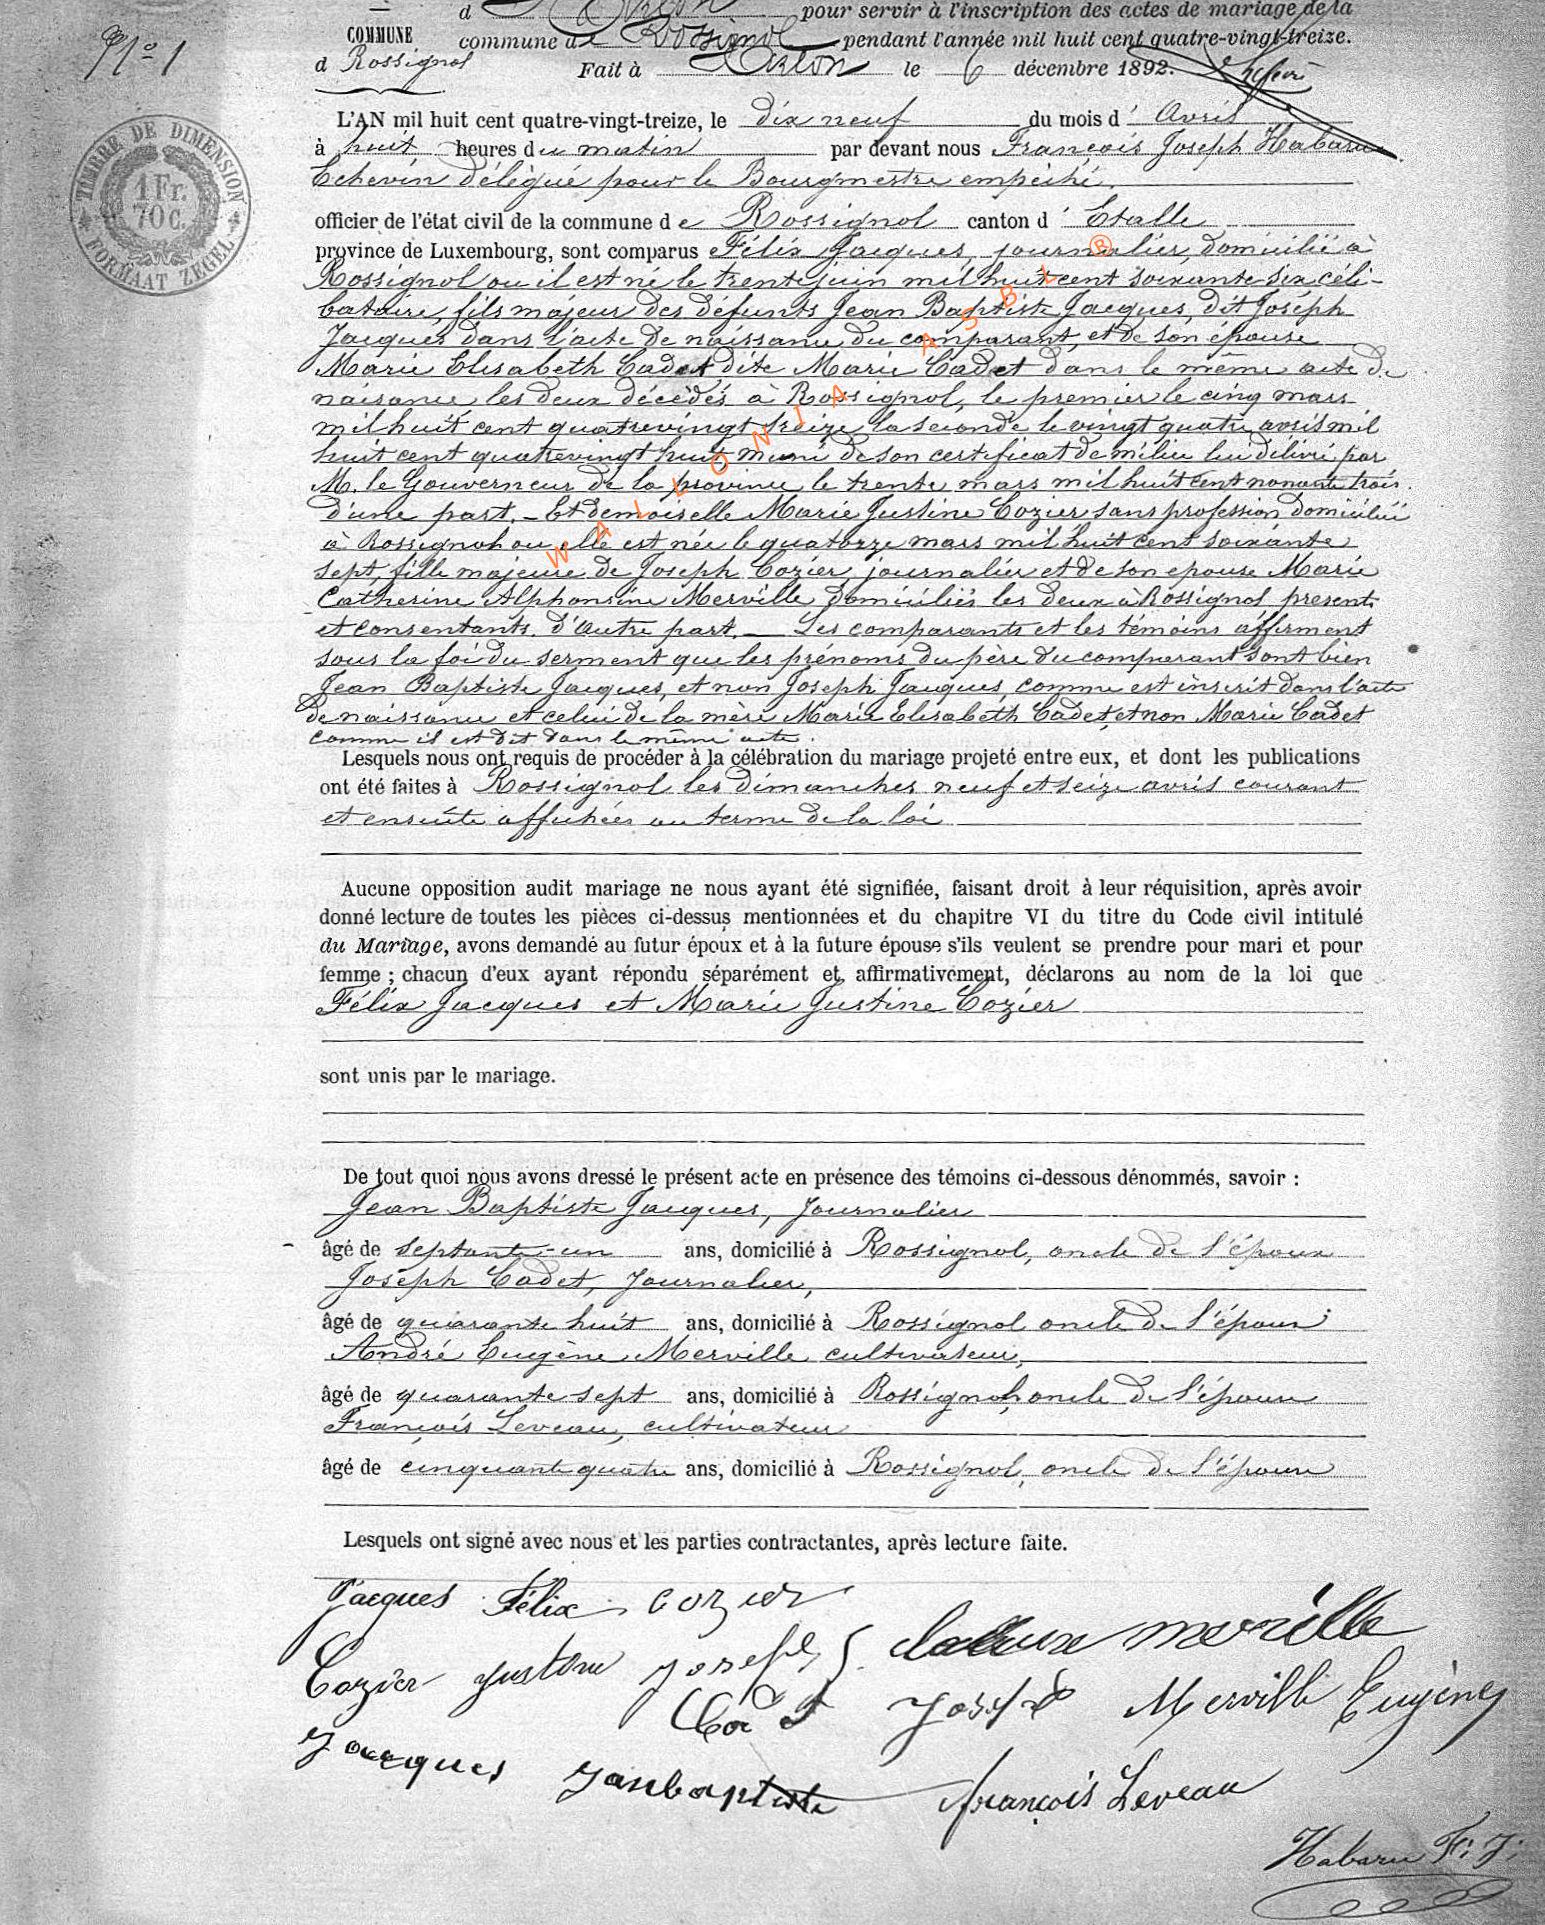 d Arlon pour servir à l'inscription des actes de mariage de la
N° 1
COMMUNE
d Rossignol
commune de Rossignol pendant l'année mil huit cent quatre-vingt-treize.
Fait à Arlon le 6 décembre 1892.
TIMBRE DE DIMENSION
1 Fr.
70 C.
FORMAAT ZEGEL
L'AN mil huit cent quatre-vingt-treize, le dix neuf du mois d' Avril
à huit heures du matin par devant nous François Joseph Habaru
Echevin délégué pour le Bourgmestre empêché.
officier de l'état civil de la commune de Rossignol canton d' Etalle
province de Luxembourg, sont comparus Félix Jacques, journalier, domicilié à
Rossignol ou il est né le trente juin mil huit cent soixante six céli-
bataire, fils majeur des défunts Jean Baptiste Jacques, dit Joseph
Jacques dans l'acte de naissance du comparant, et de son épouse
Marie Elisabeth Cadet dite Marie Cadet dans le même acte de
naisance les deux décédés à Rossignol, le premier le cinq mars
mil huit cent quatrevingt treize la seconde le vingt quatre avril mil
huit cent quatrevingt huit, muni de son certificat de milice lui délivré par
M. le Gouverneur de la province le trente mars mil huit cent nonante trois.
d'une part. _ Et demoiselle Marie Justine Cozier sans profession domiciliée
à Rossignol ou elle est née le quatorze mars mil huit cent soixante
sept, fille majeure de Joseph Cozier, journalier et de son epouse Marie
Catherine Alphonsine Merville domiciliés les deux à Rossignol present
et consentants. d'autre part. _ Les comparants et les témoins affirment
sous la foi du serment que les prénoms du père du comparant sont bien
Jean Baptiste Jacques, et non Joseph Jacques, comme est inscrit dans l'acte
de naissance et celui de la mère Marie Elisabeth Cadet, et non Marie Cadet
comme il est dit dans le même acte.
WALLONIA ASBL ®
Lesquels nous ont requis de procéder à la célébration du mariage projeté entre eux, et dont les publications
ont été faites à Rossignol les dimanches neuf et seize avril courant
et ensuite affichées au terme de la loi
Aucune opposition audit mariage ne nous ayant été signifiée, faisant droit à leur réquisition, après avoir
donné lecture de toutes les pièces ci-dessus mentionnées et du chapitre VI du titre du Code civil intitulé
du Mariage, avons demandé au futur époux et à la future épouse s'ils veulent se prendre pour mari et pour
femme ; chacun d'eux ayant répondu séparément et affirmativement, déclarons au nom de la loi que
Félix Jacques et Marie Justine Cozier
sont unis par le mariage.
De tout quoi nous avons dressé le présent acte en présence des témoins ci-dessous dénommés, savoir :
Jean Baptiste Jacques, Journalier
âgé de septante-un ans, domicilié à Rossignol, oncle de l'époux
Joseph Cadet, Journalier,
âgé de quarante huit ans, domicilié à Rossignol oncle de l'époux
André Eugène Merville cultivateur,
âgé de quarante sept ans, domicilié à Rossignol, oncle de l'épouse
François Leveau, cultivateur
âgé de cinquante quatre ans, domicilié à Rossignol, oncle de l'épouse
Lesquels ont signé avec nous et les parties contractantes, après lecture faite.
Jacques Félix cozier
Cozier Justine Joseph merville
Cadet Joseph Merville Eugène
Jacques Janbaptiste François Leveau
Habaru F. J.